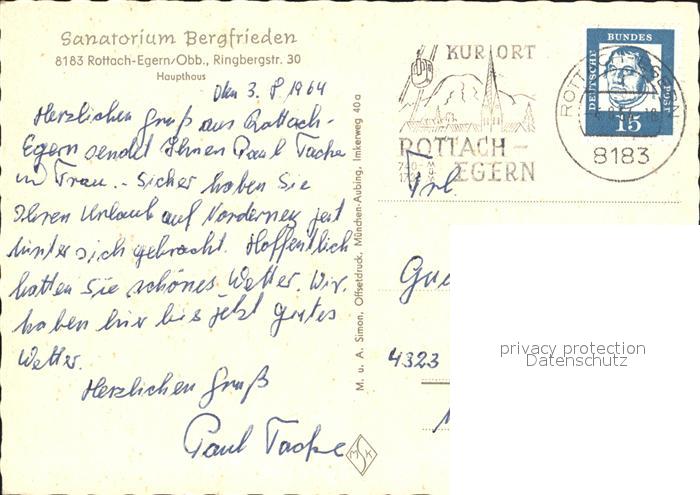 Sanatorium Bergfrieden
8183 Rottach-Egern/Obb., Ringbergstr. 30
Haupthaus
Den 3. 8 1964
Herzlichen Gruß aus Rottach-
Egern sendet Ihnen Paul Tacke
u Frau. Sicher haben Sie
Ihren Urlaub auf Norderney jetzt
hinter sich gebracht. Hoffentlich
hatten Sie schönes Wetter. Wir
haben hier bis jetzt gutes
Wetter.
Herzlichen Gruß
Paul Tacke
M. u. A. Simon, Offsetdruck, München-Aubing, Imkerweg 40a
MSK
KURORT
ROTTACH-
EGERN
740-
1700 m
DEUTSCHE
BUNDES
POST
15
ROTTACH-EGERN
8183
Frl.
4323
privacy protection
Datenschutz